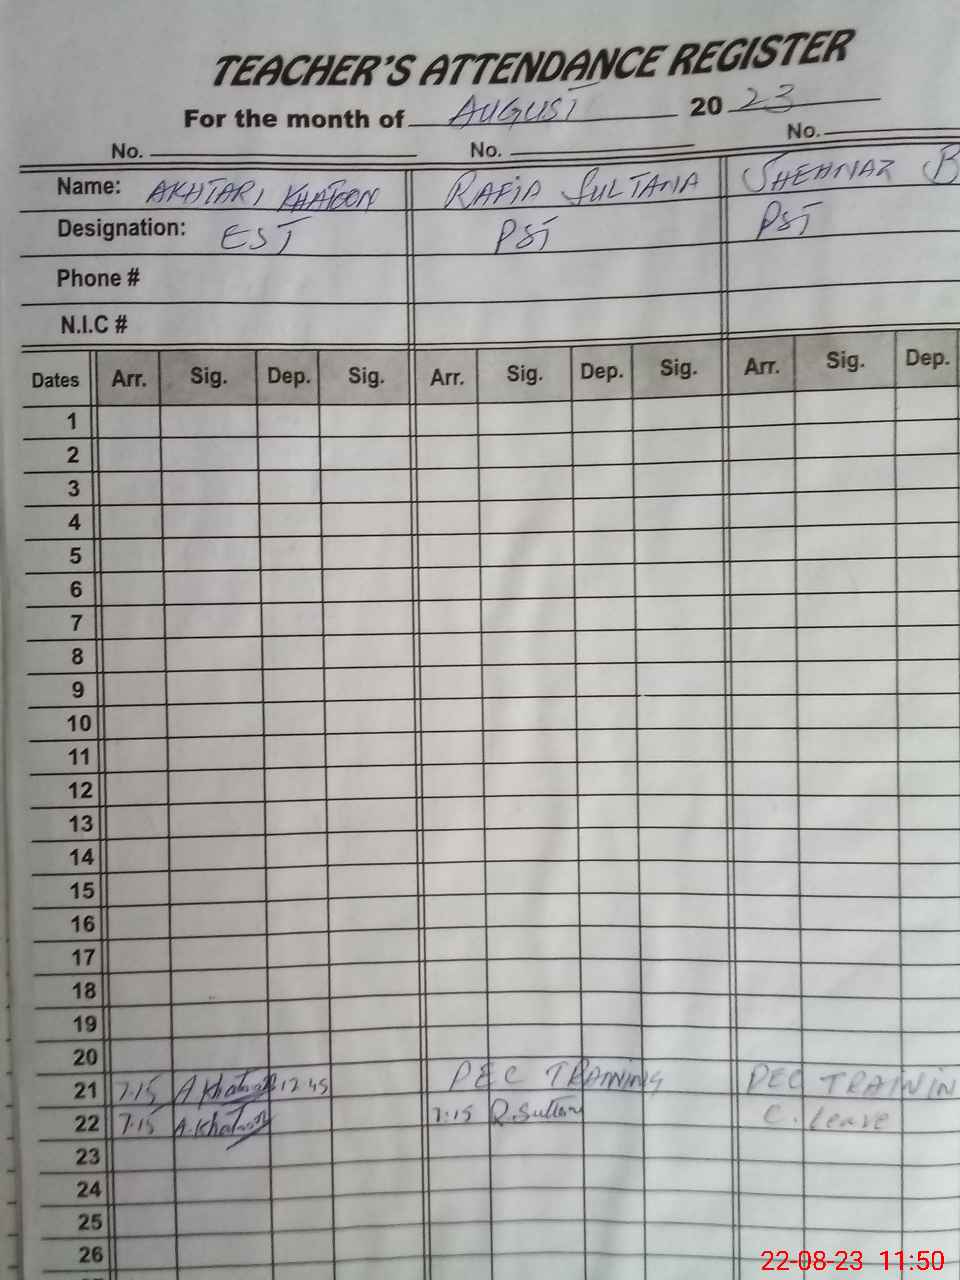 TEACHER'S ATTENDANCE REGISTER
For the month of AUGUST 2023
No. No. No.
Name: AKHTARI KHATOON RAFIA SULTANA SHEHNAZ B
Designation: EST PST PST
Phone #
N.I.C #
Dates Arr. Sig. Dep. Sig. Arr. Sig. Dep. Sig. Arr. Sig. Dep.
1
2
3
4
5
6
7
8
9
10
11
12
13
14
15
16
17
18
19
20
21 7.15 A.Khatoon 12.45 PEC TRAINING PEC TRAININ
22 7.15 A.Khatoon 7.15 R.Sultana C. Leave
23
24
25
26
22-08-23 11:50